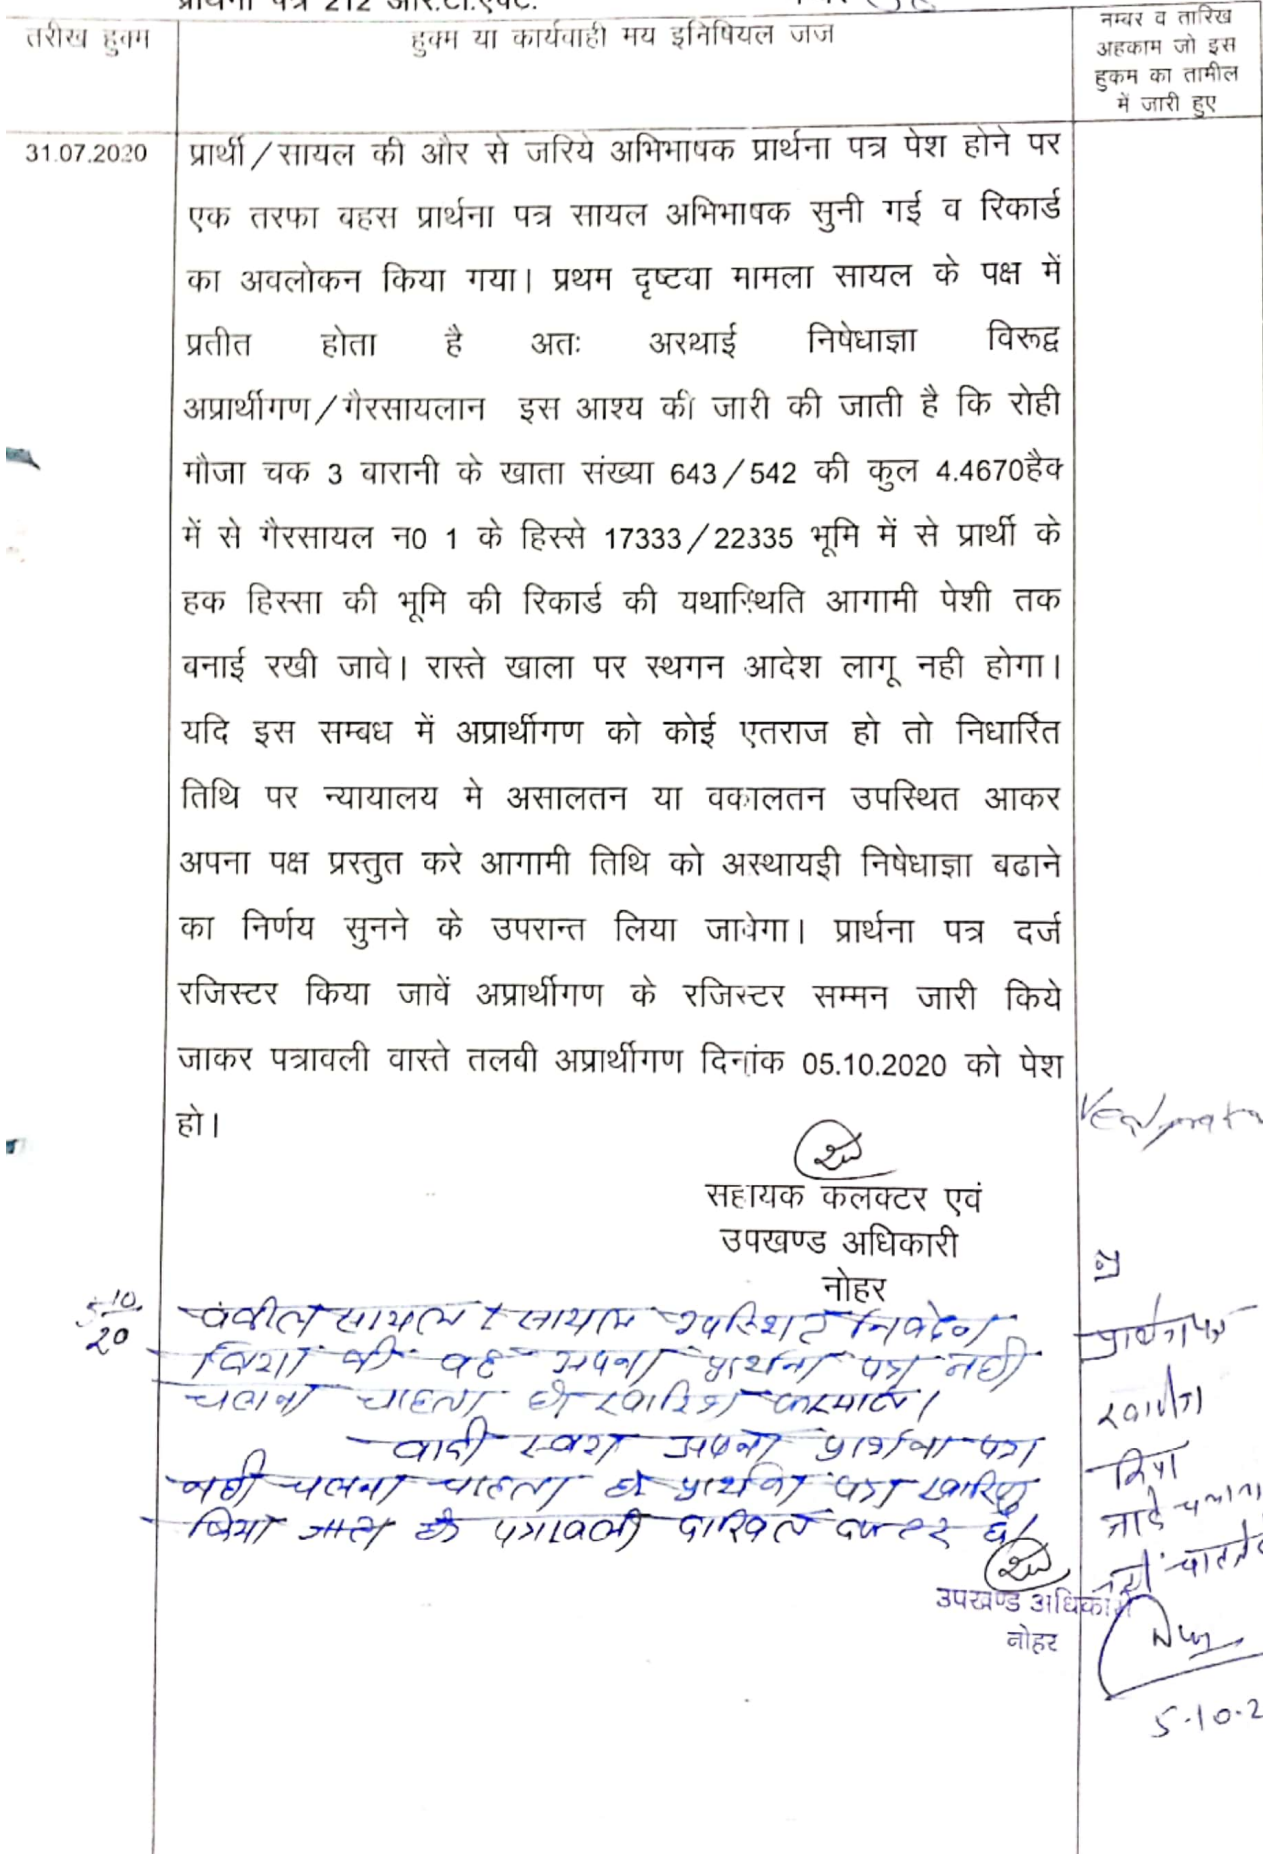 प्रार्थना पत्र 212 आर.टी.एक्ट.
तरीख हुक्म
हुक्म या कार्यवाही मय इनिषियल जज
नम्बर व तारिख
अहकाम जो इस
हुकम का तामील
में जारी हुए
31.07.2020
प्रार्थी/सायल की और से जरिये अभिभाषक प्रार्थना पत्र पेश होने पर
एक तरफा बहस प्रार्थना पत्र सायल अभिभाषक सुनी गई व रिकार्ड
का अवलोकन किया गया। प्रथम दृष्टया मामला सायल के पक्ष में
प्रतीत होता है अतः अस्थाई निषेधाज्ञा विरूद्व
अप्रार्थीगण/गैरसायलान इस आश्य की जारी की जाती है कि रोही
मौजा चक 3 बारानी के खाता संख्या 643/542 की कुल 4.4670हैक
में से गैरसायल न0 1 के हिस्से 17333/22335 भूमि में से प्रार्थी के
हक हिस्सा की भूमि की रिकार्ड की यथास्थिति आगामी पेशी तक
बनाई रखी जावे। रास्ते खाला पर स्थगन आदेश लागू नही होगा।
यदि इस सम्बध में अप्रार्थीगण को कोई एतराज हो तो निधार्रित
तिथि पर न्यायालय मे असालतन या वकालतन उपस्थित आकर
अपना पक्ष प्रस्तुत करे आगामी तिथि को अस्थायई निषेधाज्ञा बढाने
का निर्णय सुनने के उपरान्त लिया जावेगा। प्रार्थना पत्र दर्ज
रजिस्टर किया जावें अप्रार्थीगण के रजिस्टर सम्मन जारी किये
जाकर पत्रावली वास्ते तलवी अप्रार्थीगण दिनांक 05.10.2020 को पेश
हो।
सहायक कलक्टर एवं
उपखण्ड अधिकारी
नोहर
5-10-20
वकील सायल सायल उपस्थित निवेदन
किया की वह अपना प्रार्थना पत्र नही
चलाना चाहता खारिज फरमावे।
वादी स्वयं अपना प्रार्थना पत्र
नही चलना चाहता है प्रार्थना पत्र खारिज
किया जाता है पत्रावली दाखिल दफ्तर हो।
उपखण्ड अधिकारी
नोहर
प्रार्थना पत्र
खारीज
किया
जावे चलाना
नही चाहते
5-10-2